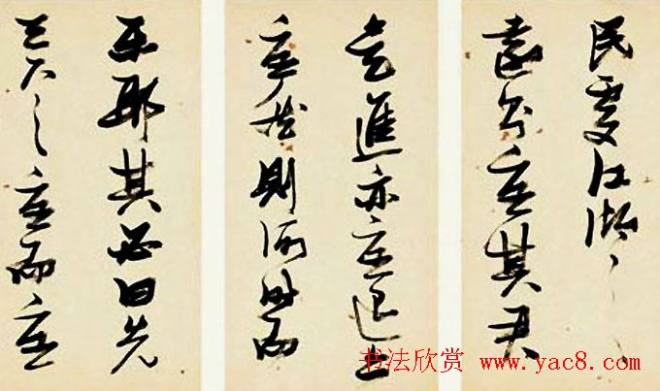 民處江湖之
遠則憂其君
是進亦憂退亦
憂然則何時而
樂耶其必曰先
天下之憂而憂
书法欣赏 www.yac8.com